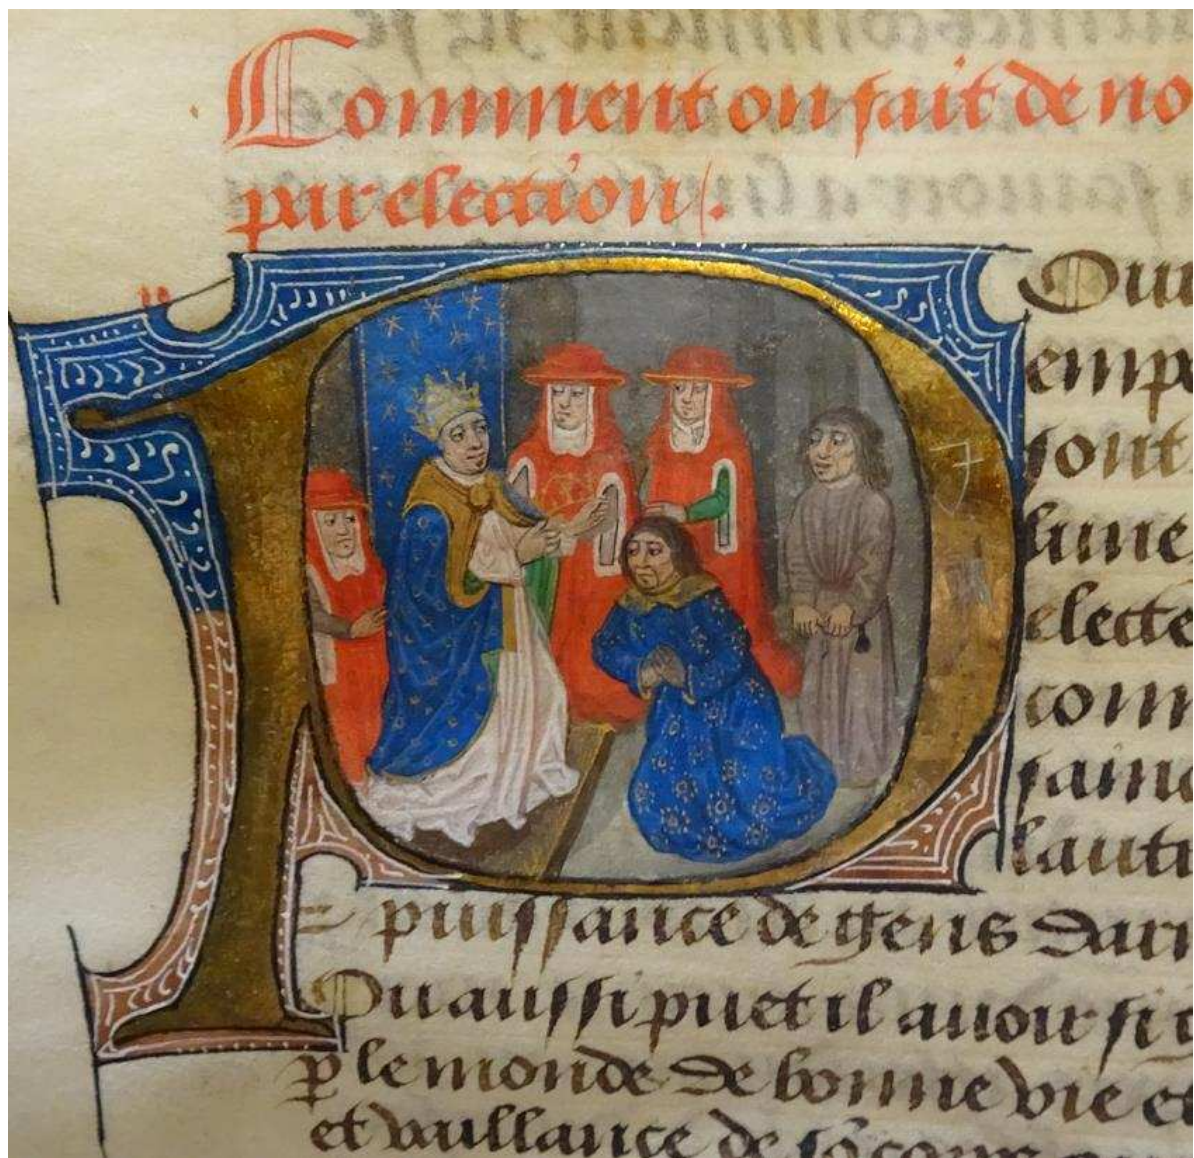 Comment on fait de no
par election /.
P
Ou
empe
sont
lune
electe
comm
sainc
lautr
puissance de gens darm
Ou aussi puet il auoir si g
p le monde de bonne vie et
et vaillance de